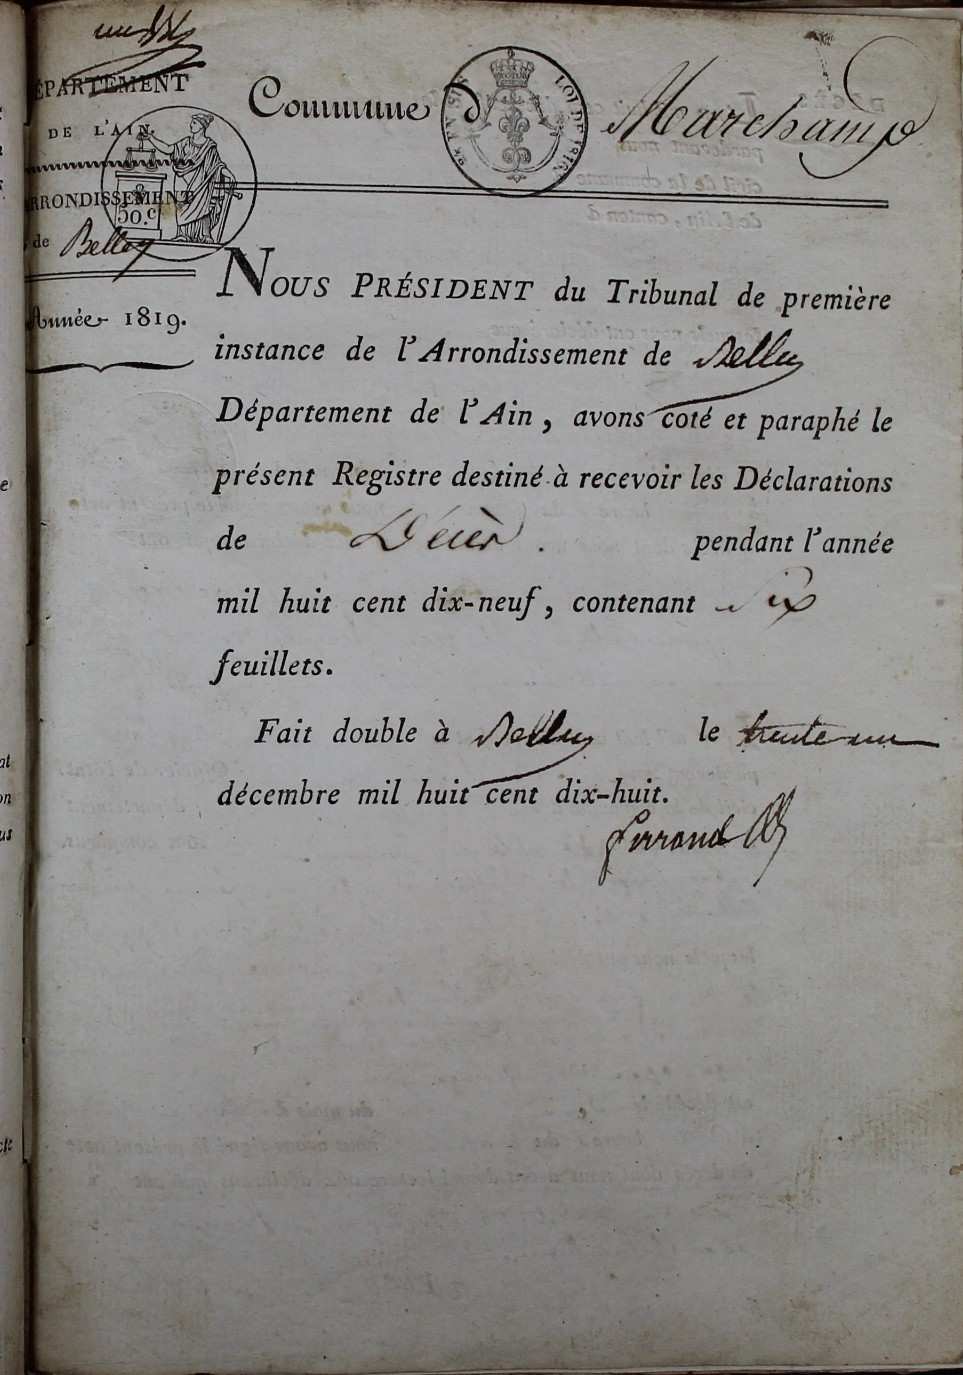 DÉPARTEMENT
DE L'AIN.
ARRONDISSEMENT
de Belley
Année 1819.
50.c
Commune d Marchamp
LOI DE 1816
NOUS PRÉSIDENT du Tribunal de première
instance de l'Arrondissement de Belley
Département de l'Ain, avons coté et paraphé le
présent Registre destiné à recevoir les Déclarations
de Décès. pendant l'année
mil huit cent dix-neuf, contenant Six
feuillets.
Fait double à Belley le trente un
décembre mil huit cent dix-huit.